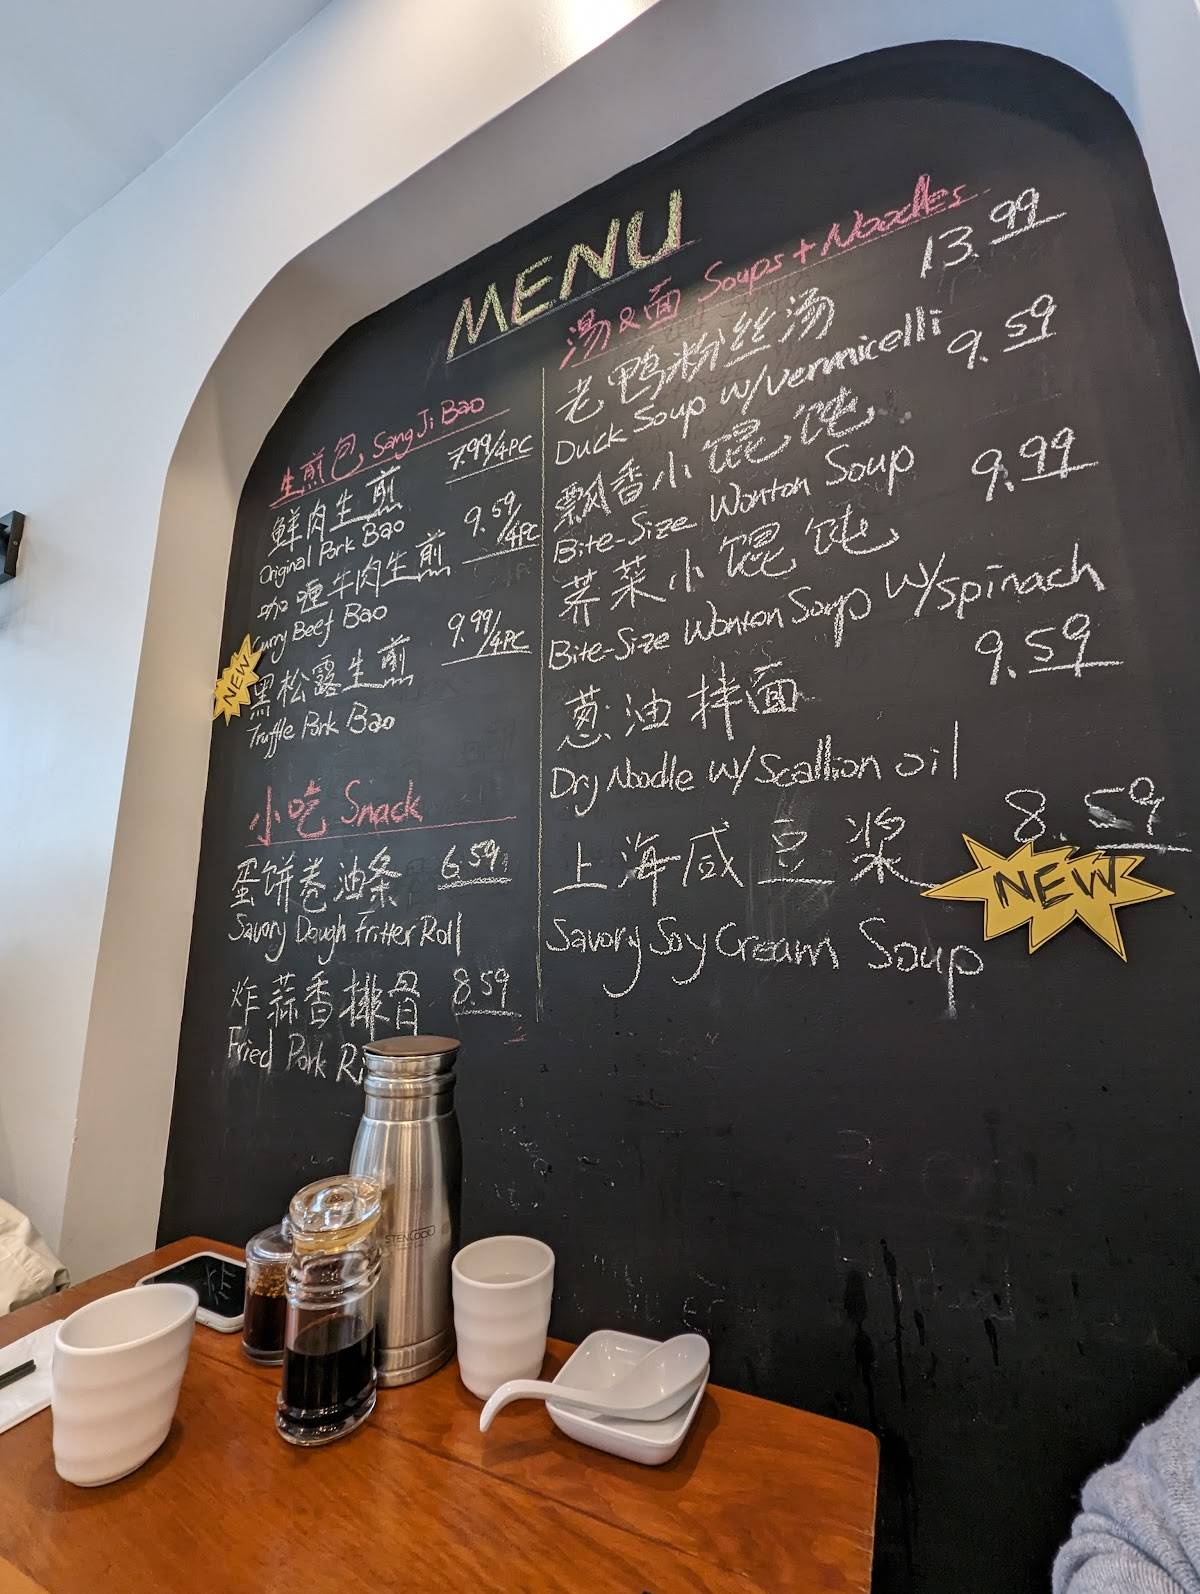 MENU
生煎包 SangJi Bao
鲜肉生煎 7.99/4PC
Original Pork Bao
咖喱牛肉生煎 9.59/4PC
Curry Beef Bao
NEW
黑松露生煎 9.99/4PC
Truffle Pork Bao
小吃 Snack
蛋饼卷油条 6.59
Savory Dough Fritter Roll
炸蒜香排骨 8.59
Fried Pork Ri
汤&面 Soups + Noodles
老鸭粉丝汤 13.99
Duck Soup W/Vermicelli
飘香小馄饨 9.59
Bite-Size Wonton Soup
荠菜小馄饨 9.99
Bite-Size Wonton Soup W/Spinach
葱油拌面 9.59
Dry Noodle W/Scallion oil
上海咸豆浆 8.59
NEW
Savory Soy Cream Soup